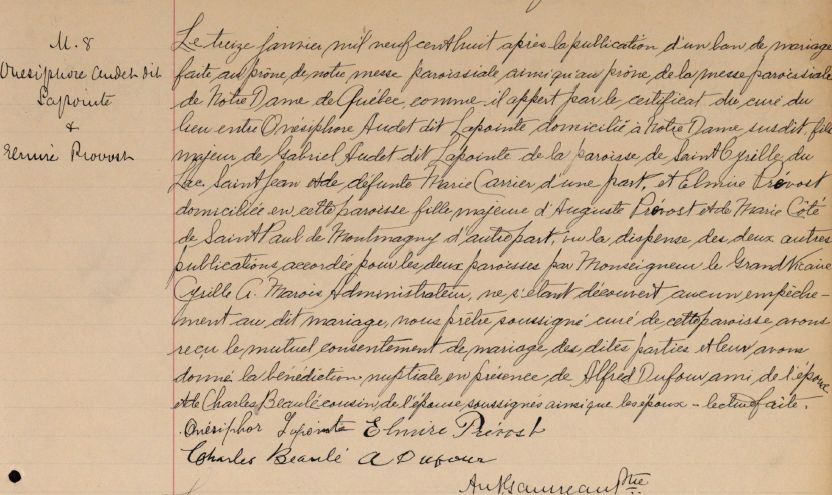 M. 8
Onésiphore Audet dit
Lapointe
&
Elmire Provost
Le treize janvier mil neuf cent huit après la publication d'un ban de mariage
faite au prône de notre messe paroissiale ainsi qu'au prône de la messe paroissiale
de Notre Dame de Québec, comme il appert par le certificat du curé du
lieu entre Onésiphore Audet dit Lapointe domicilié à Notre Dame susdit, fils
majeur de Gabriel Audet dit Lapointe de la paroisse de Saint Cyrille du
Lac Saint Jean et de défunte Marie Carrier d'une part, et Elmire Prévost
domiciliée en cette paroisse fille majeure d'Auguste Prévost et de Marie Côté
de Saint Paul de Montmagny d'autre part, vu la dispense des deux autres
publications accordée pour les deux paroisses par Monseigneur le Grand Vicaire
Cyrille A. Marois Administrateur, ne s'étant découvert aucun empêche-
ment au dit mariage, nous prêtre soussigné curé de cette paroisse avons
reçu le mutuel consentement de mariage des dites parties et leur avons
donné la bénédiction nuptiale en présence de Alfred Dufour ami de l'époux
et de Charles Beaulé cousin de l'épouse soussignés ainsi que les époux - lecture faite.
Onésiphor Lapointe Elmire Prévost
Charles Beaulé A Dufour
Ptre